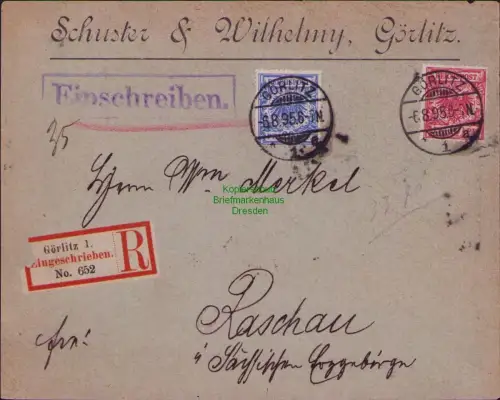 Schuster & Wilhelmy, Görlitz.
Einschreiben.
GÖRLITZ
6.8.95.6-7N.
1.
GÖRLITZ
-6.8.95.6-7N.
1
Herrn Wm. Merkel
Kopierschutz
Briefmarkenhaus
Dresden
Görlitz 1.
Eingeschrieben.
No. 652
R
Raschau
frei!
i/ Sächsischen Erzgebirge